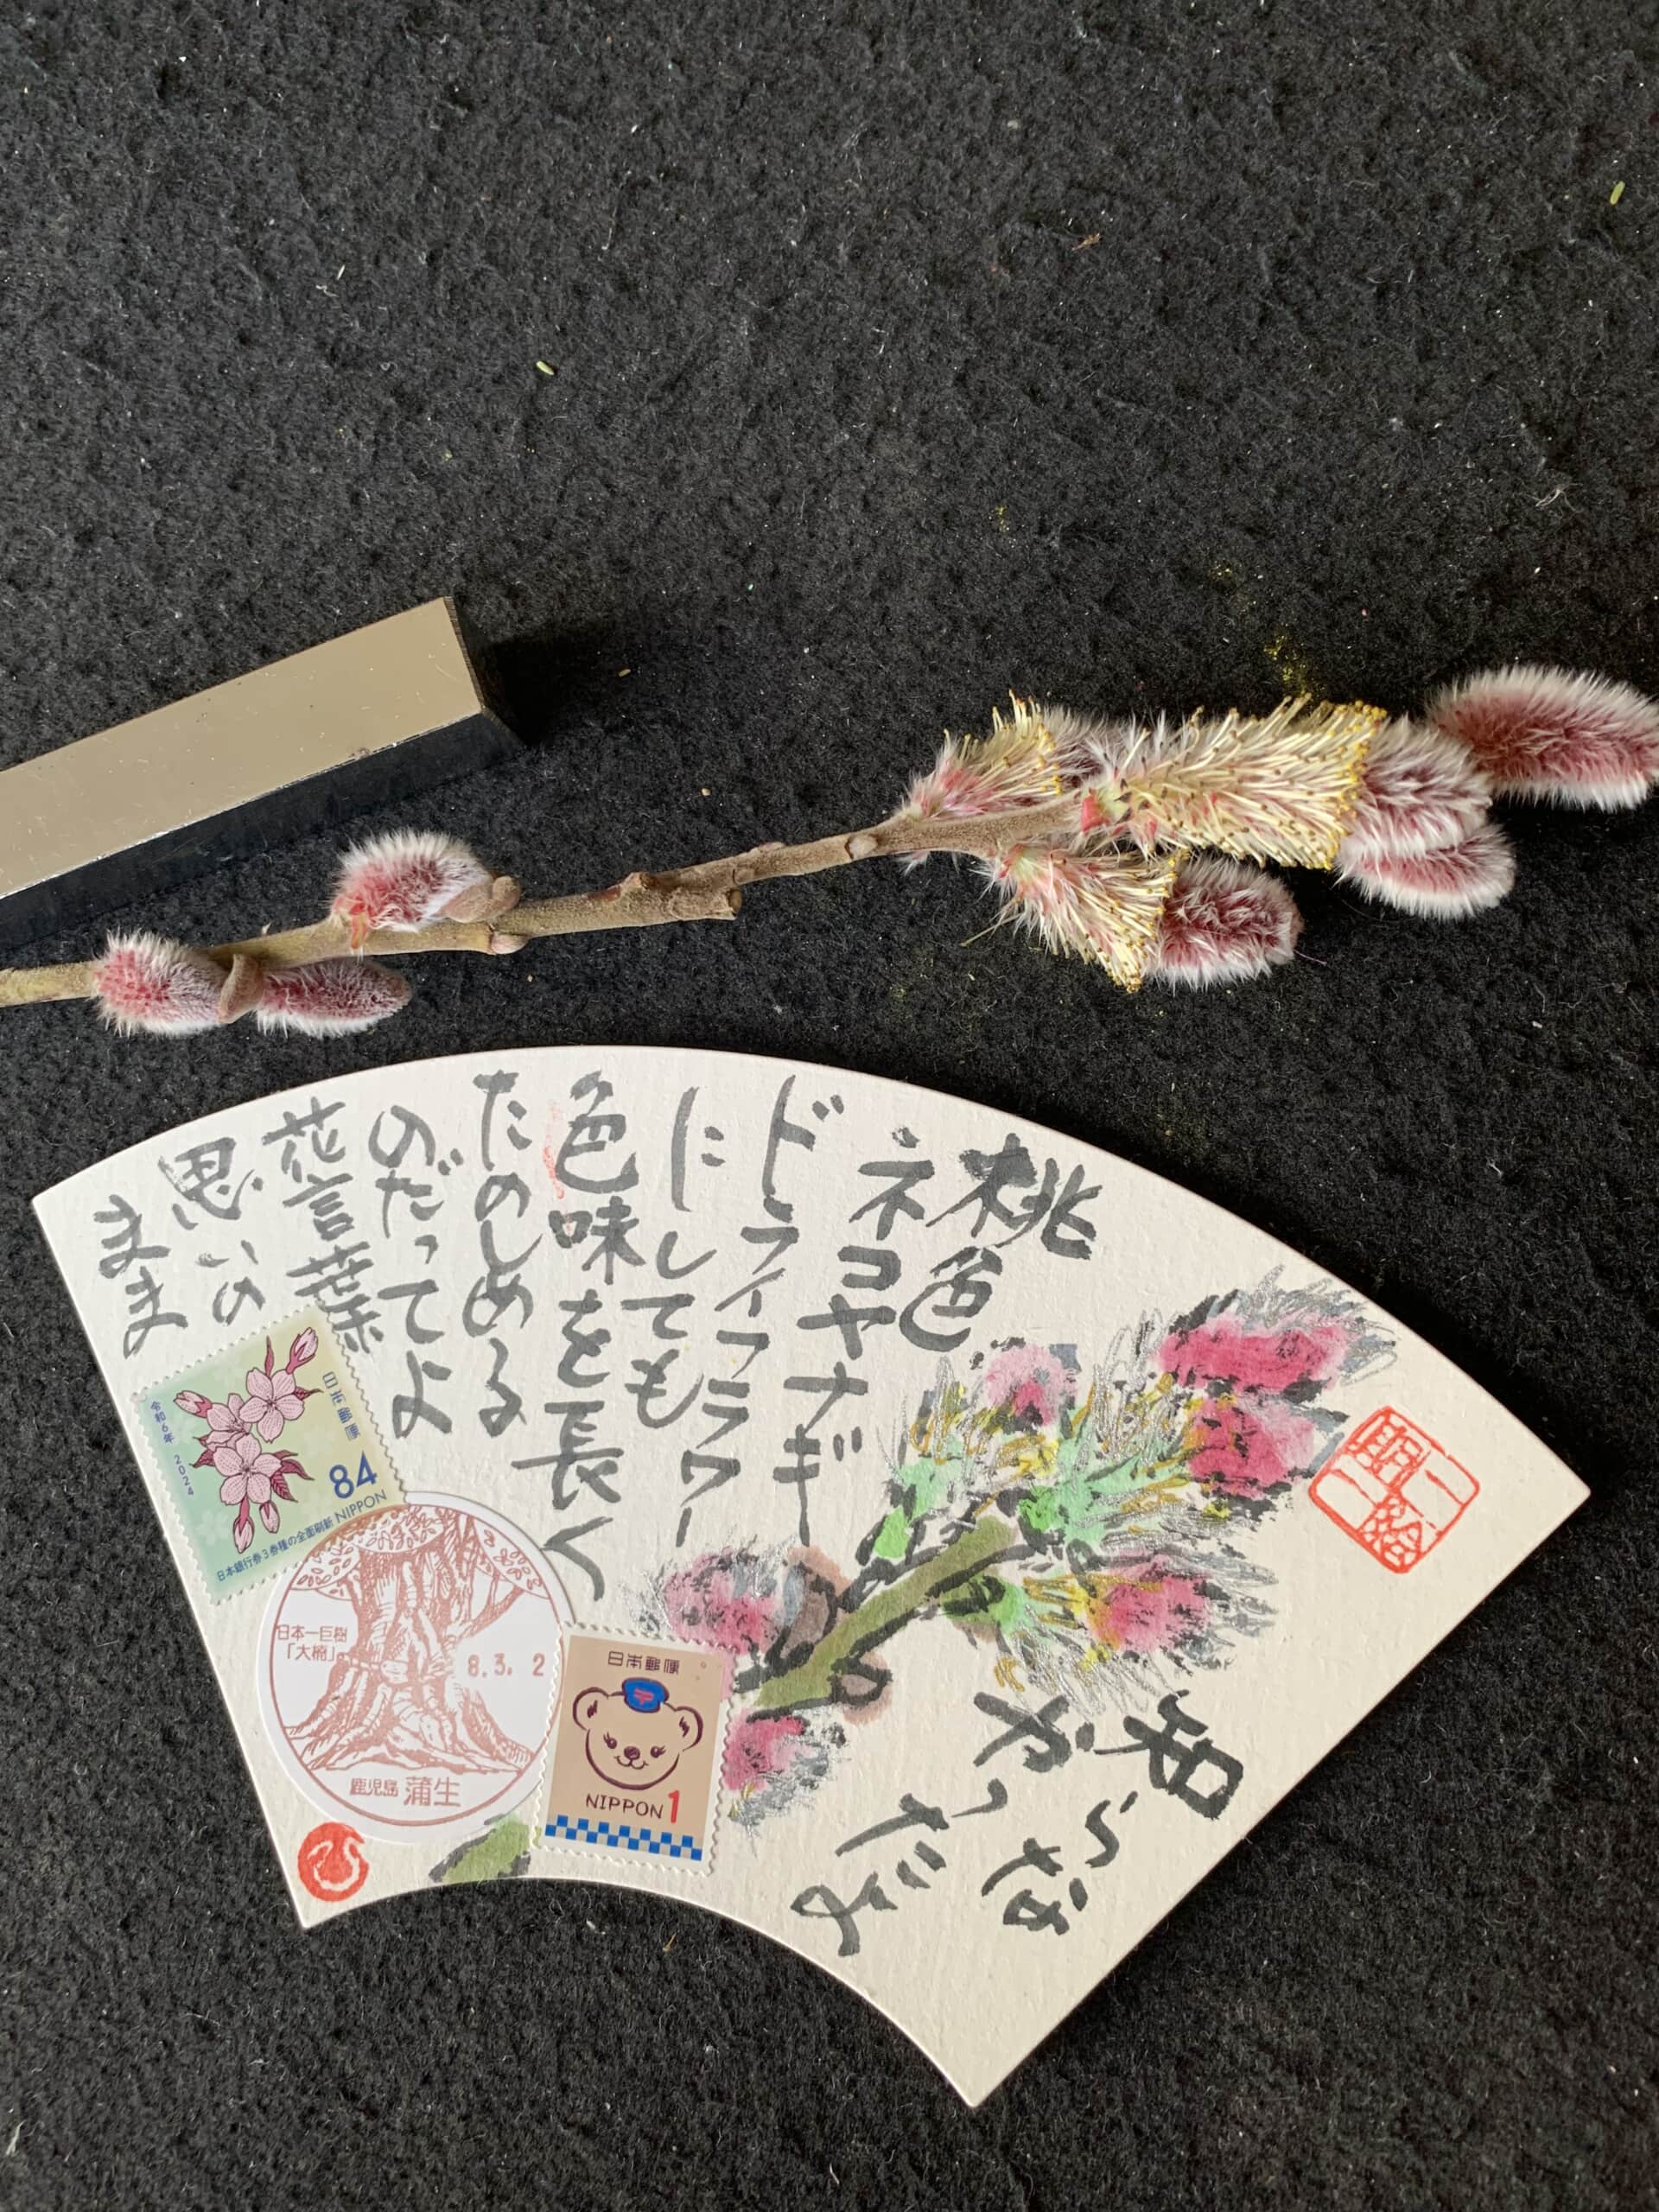 桃色
ネコヤナギ
ドライフラワー
にしても
色味を長く
たのしめる
のだってよ
花言葉
思いの
まま
知らな
かっただよ
日本郵便
84
NIPPON
令和6年 2024
日本銀行券3券種の全面刷新
日本一巨樹
「大楠」
8.3.2
鹿児島 蒲生
日本郵便
NIPPON 1
ひ